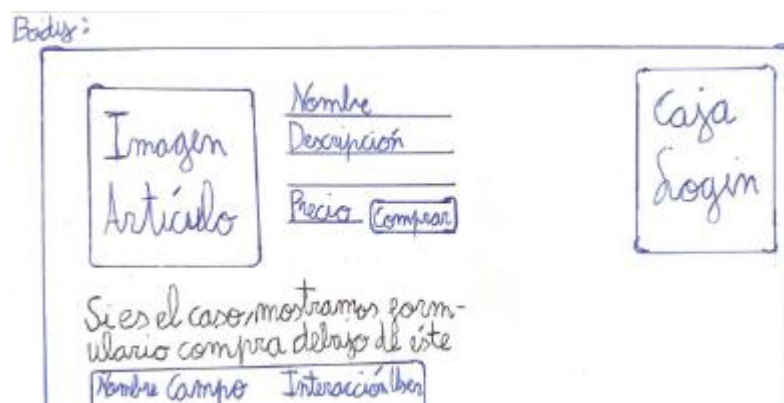 Body:
Imagen
Artículo
Nombre
Descripción
Precio Comprar
Caja
Login
Si es el caso, mostramos form-
ulario compra debajo de éste
Nombre Campo Interacción User